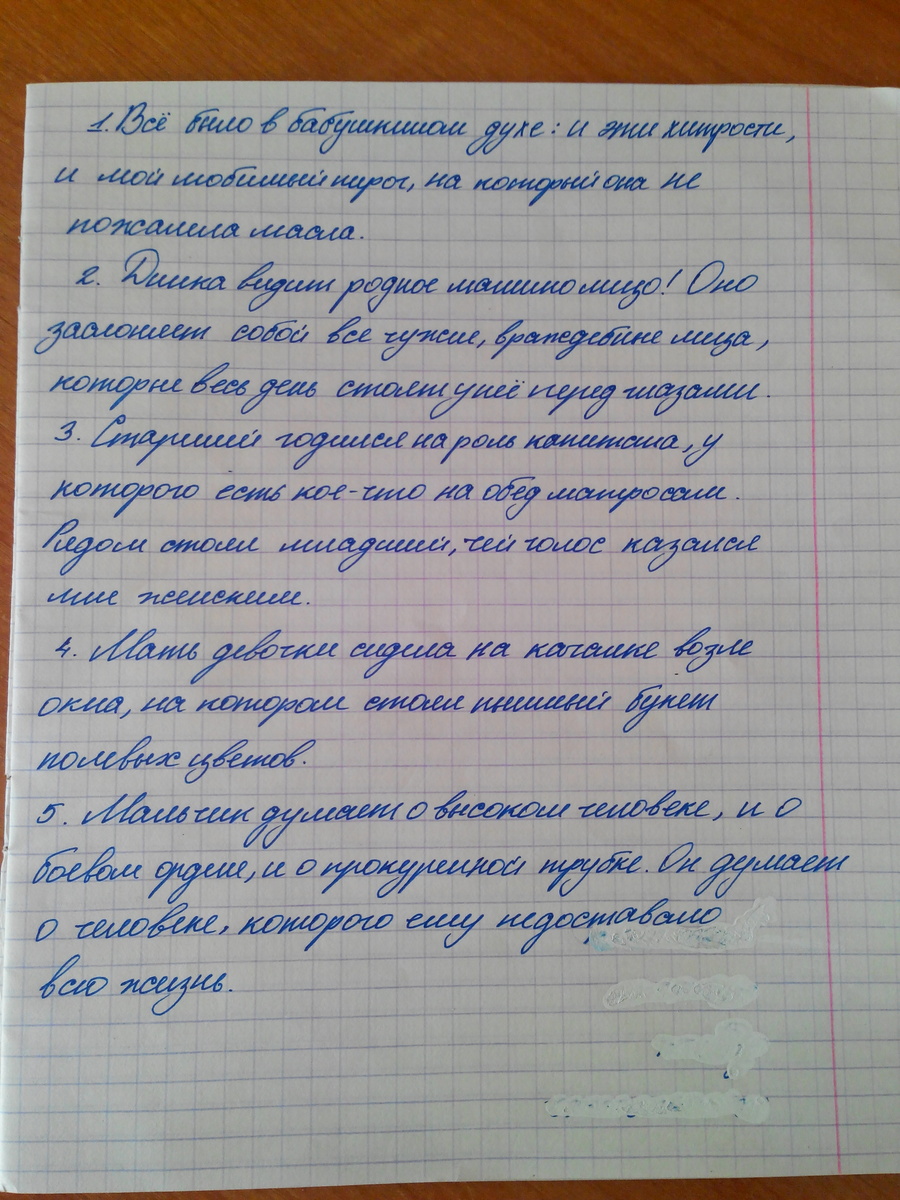 1. Всё было в бабушкином духе: и эти хитрости,
и мой любимый пирог, на который она не
пожалела масла.
2. Димка видит родное машино лицо! Оно
заслоняет собой все чужие, враждебные лица,
которые весь день стоят у неё перед глазами.
3. Старший годился на роль капитана, у
которого есть кое-что на обед матросам.
Рядом стоял младший, чей голос казался
мне женским.
4. Мать девочки сидела на качалке возле
окна, на котором стоял пышный букет
полевых цветов.
5. Мальчик думает о высоком человеке, и о
боевом ордене, и о прокуренной трубке. Он думает
о человеке, которого ему недоставало
всю жизнь.